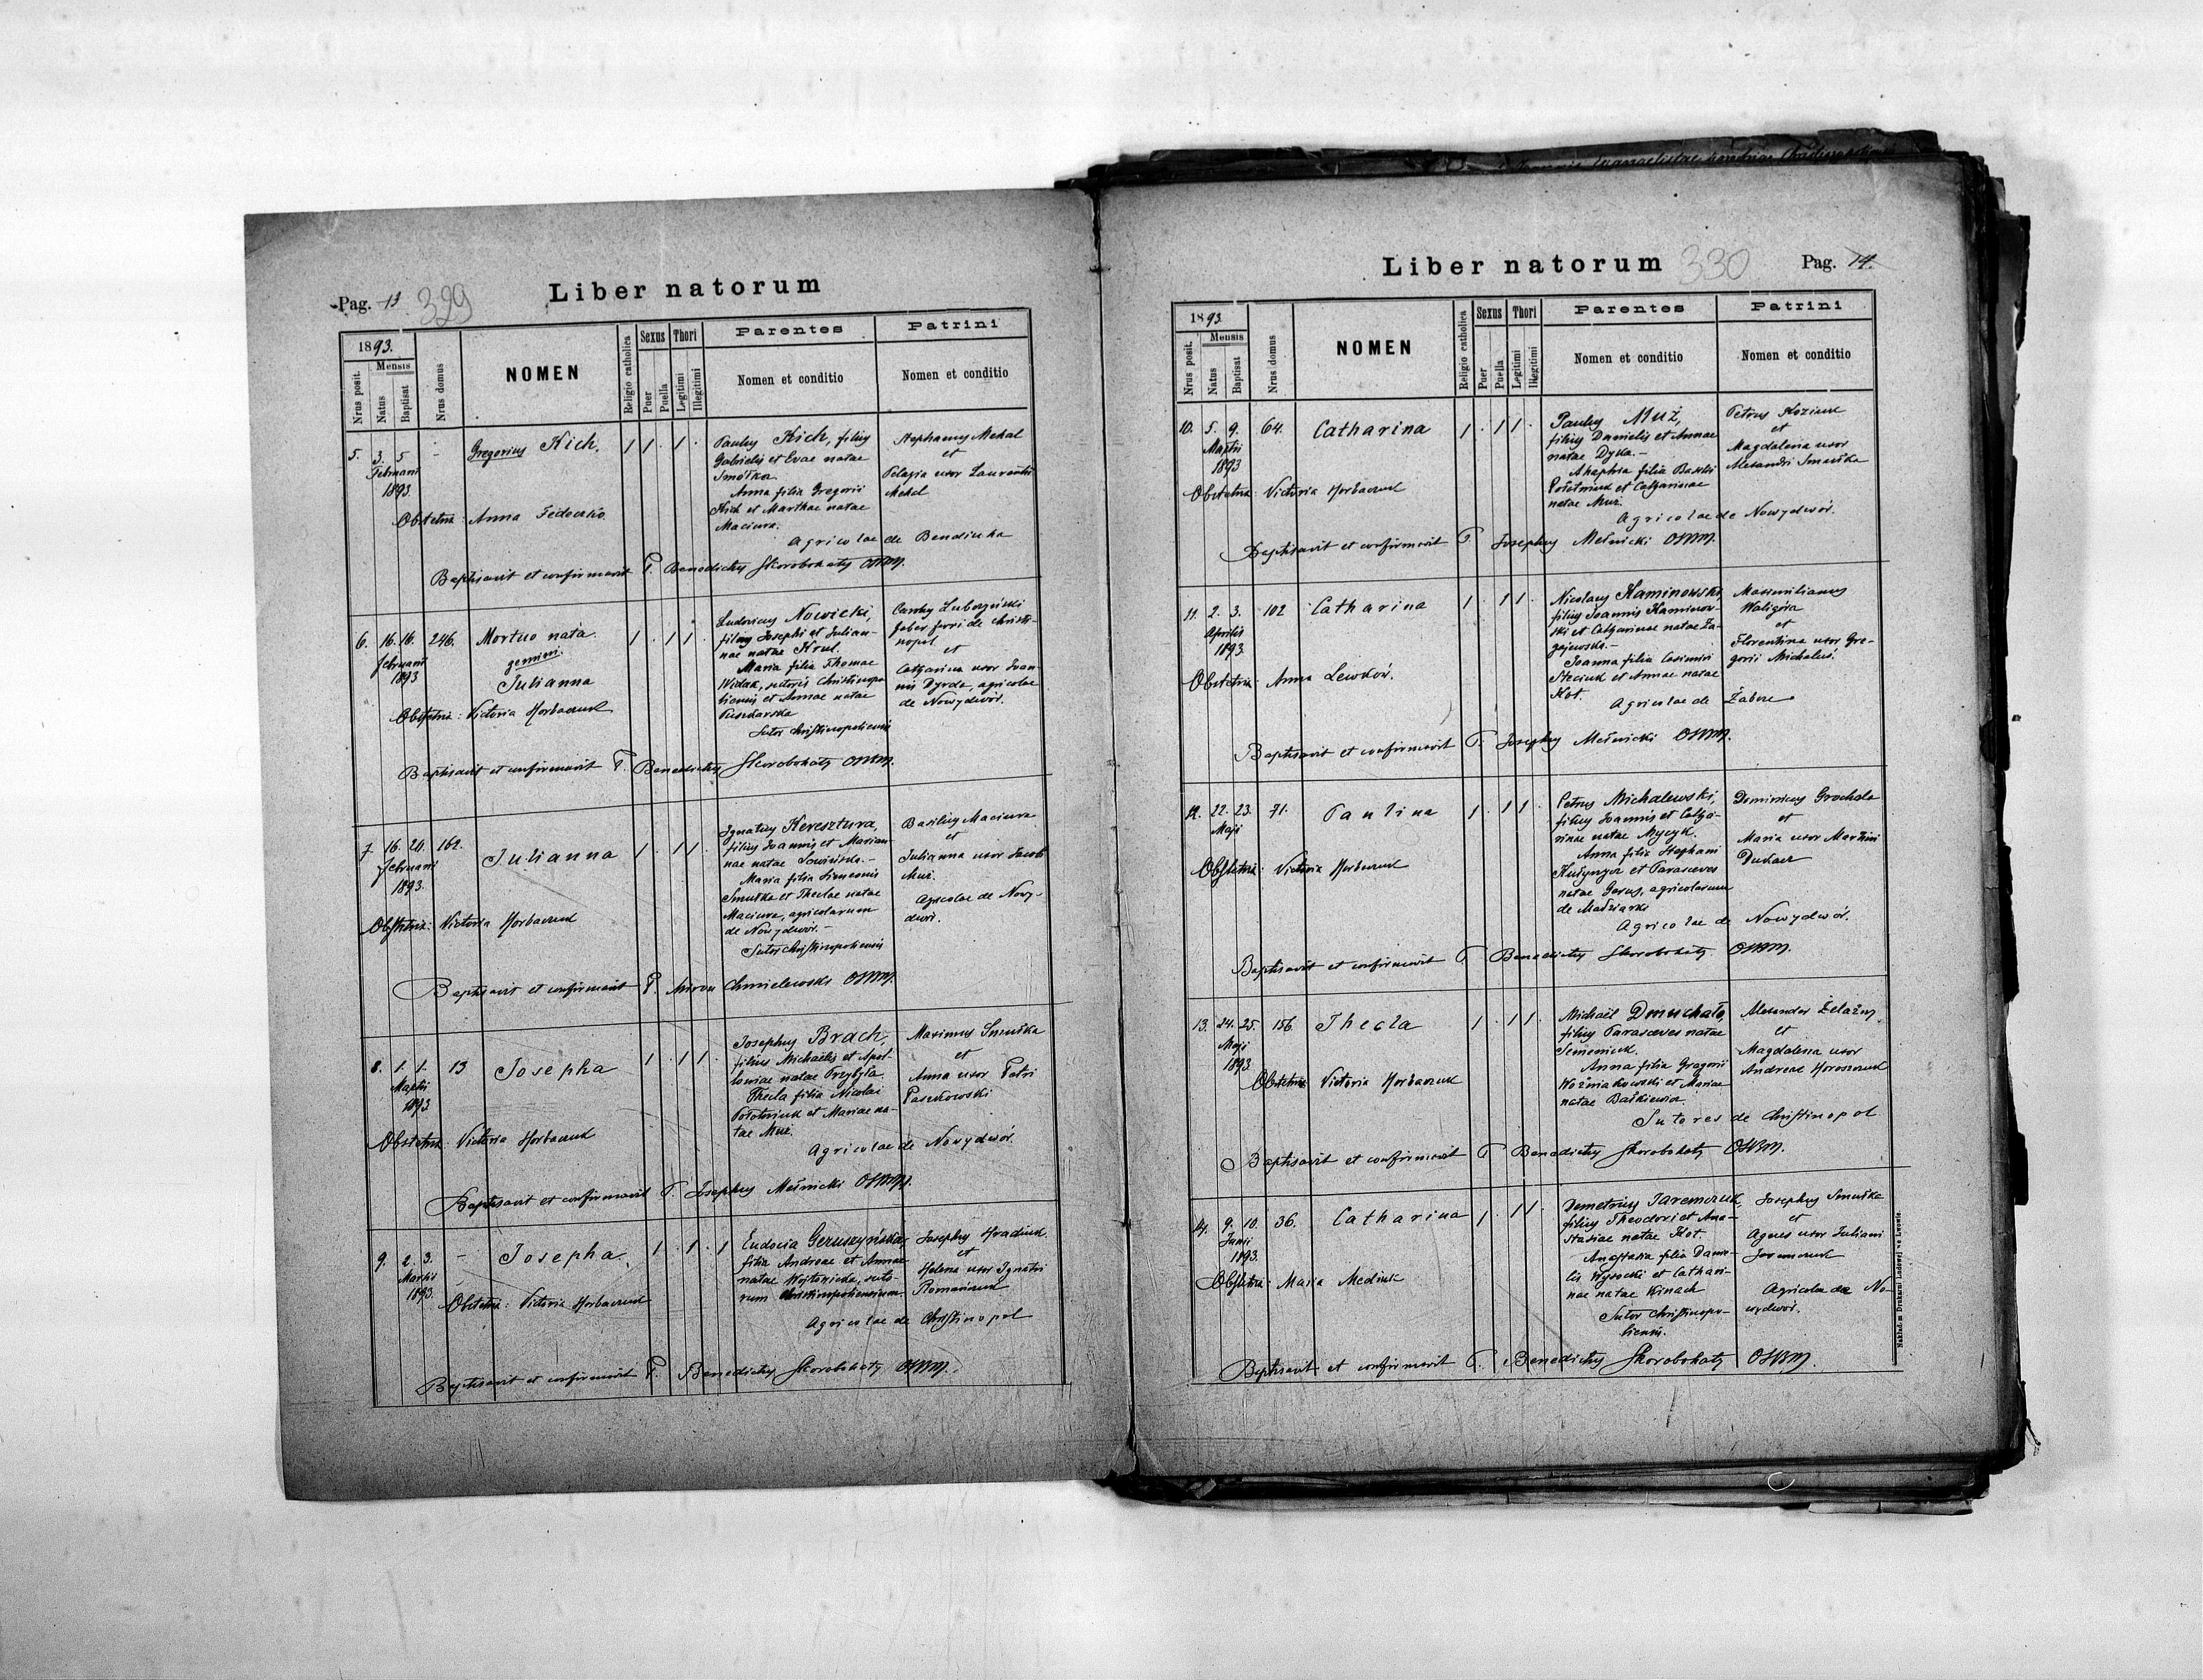 Pag. 13. 329
Liber natorum
1893.
Nrus posit.
Mensis
Natus
Baptisat
Nrus domus
NOMEN
Religio catholica
Sexus
Puer
Puella
Thori
Legitimi
Illegitimi
Parentes
Nomen et conditio
Patrini
Nomen et conditio
5. 3. 5 - Gregorius Kich. 1 1 . 1 .
Februarii
1893.
Paulus Kich, filius
Gabrielis et Evae natae
Smółka.
Anna filia Gregorii
Kich et Marthae natae
Maciura.
Stephanus Mekal
et
Pelagia uxor Laurentii
Mekal
Agricolae de Bendiuha
Obstetrix: Anna Fedeczko.
Baptisavit et confirmavit P. Benedictus Skorobohaty OSBM.
6. 16. 16. 246. Mortuo nata. 1 . 1 1 .
februarii
1893
gemini.
Julianna
Ludovicus Nowicki,
filius Josephi et Julian-
nae natae Krul.
Maria filia Thomae
Widak, sutoris Christinopo
liensis et Annae natae
Puszkarska
Sutor Christinopoliensis
faber ferri de Christi-
nopol
et
Catharina uxor Ioan-
nis Dyrda, agricolae
de Nowydwór.
Obstetrix: Victoria Horbaczuk
Baptisavit et confirmavit P. Benedictus Skorobohaty OSBM.
7 16. 21. 162. Julianna 1 . 1 1 .
februarii
1893.
Ignatius Keresztura,
filius Joannis et Marian-
nae natae
Maria filia Simeonis
Smutka et Theclae natae
Maciura, agricolarum
de Nowydwór.-
Sutor Christinopoliensis
Basilius Maciura
et
Julianna uxor Jacobi
Muż.
Agricolae de Nowy-
dwór.
Obstetrix: Victoria Horbaczuk
Baptisavit et confirmavit P. Miron Chmielewski OSBM.
8. 1. 1. 13 Josepha 1 . 1 1 .
Martii
1893
Josephus Brach,
filius Michaelis et Apol-
loniae natae Przybyła.
Thecla filia Nicolai
Połotniuk et Mariae na-
tae Muż.
Maximus Smułka
et
Anna uxor Petri
Paszkowski
Agricolae de Nowydwór.
Obstetrix: Victoria Horbaczuk
Baptisavit et confirmavit P. Josephus Melnicki OSBM.
9. 2. 3. - Josepha. 1 . 1 . 1
Martii
1893.
Eudocia Geruszyńska,
filia Andreae et Annae
natae Wojtowicka, suto-
rum Christinopoliensium.
Josephus Hradiuk.
et
Helena uxor Ignatii
Romaniuk
Agricolae de Christinopol
Obstetrix: Victoria Horbaczuk
Baptisavit et confirmavit P. Benedictus Skorobohaty OSBM.
Liber natorum 330 Pag. 14.
1893.
Nrus posit.
Mensis
Natus
Baptisat
Nrus domus
NOMEN
Religio catholica
Sexus
Puer
Puella
Thori
Legitimi
Illegitimi
Parentes
Nomen et conditio
Patrini
Nomen et conditio
10. 5. 9. 64. Catharina 1 . 1 1 .
Martii
1893
Paulus Muż,
filius Danielis et Annae
natae Dyka.-
Ahaphia filia Basilii
Połotniuk et Catharinae
natae Muż.
Petrus Koziuk
et
Magdalena uxor
Alexandri Smułka
Agricolae de Nowydwór.
Obstetrix: Victoria Horbaczuk
Baptisavit et confirmavit P. Josephus Melnicki OSBM.
11. 2. 3. 102 Catharina 1 . 1 1 .
Aprilis
1893
Nicolaus Kaminowski,
filius Joannis Kaminow-
ski et Catharinae natae Za-
gajewska.-
Joanna filia Casimiri
Steciuk et Annae natae
Kot.
Maximilianus
Waligóra
et
Florentina uxor Gre-
gorii Michaluś.
Agricolae de Zabcze
Obstetrix: Anna Lewków.
Baptisavit et confirmavit P. Josephus Melnicki OSBM.
12. 22. 23. 71. Paulina 1 . 1 1 .
Maji
Petrus Michalewski,
filius Joannis et Catha-
rinae natae
Anna filia Stephani
et Parasceves
natae Gerus, agricolarum
de Madziarki
Dominicus Grochola
et
Maria uxor Martini
Duhacz
Agricolae de Nowydwór.
Obstetrix: Victoria Horbaczuk
Baptisavit et confirmavit P. Benedictus Skorobohaty OSBM.
13. 24. 25. 156. Thecla 1 . 1 1 .
Maji
1893
Michaël Dmuchało,
filius Parasceves natae
Semeniuk.
Anna filia Gregorii
Woźniakowski et Mariae
natae Baśkiewicz.
Alexander Żelazny
et
Magdalena uxor
Andreae Horoszczuk
Sutores de Christinopol
Obstetrix Victoria Horbaczuk
Baptisavit et confirmavit P. Benedictus Skorobohaty OSBM.
14. 9. 10. 36. Catharina 1 . 1 1 .
Junii
1893.
Demetrius Jaremczuk,
filius Theodori et Ana-
stasiae natae Kot.
Anastasia filia Danie-
lis Wysocki et Cathari-
nae natae Kinach
Sutor Christinopo-
liensis.
Josephus Smułka
et
Agnes uxor Juliani
Jaremczuk
Agricolae de No-
wydwór.
Obstetrix: Maria Mediuk
Baptisavit et confirmavit P. Benedictus Skorobohaty OSBM.
Nakładem Drukarni Ludowej we Lwowie.